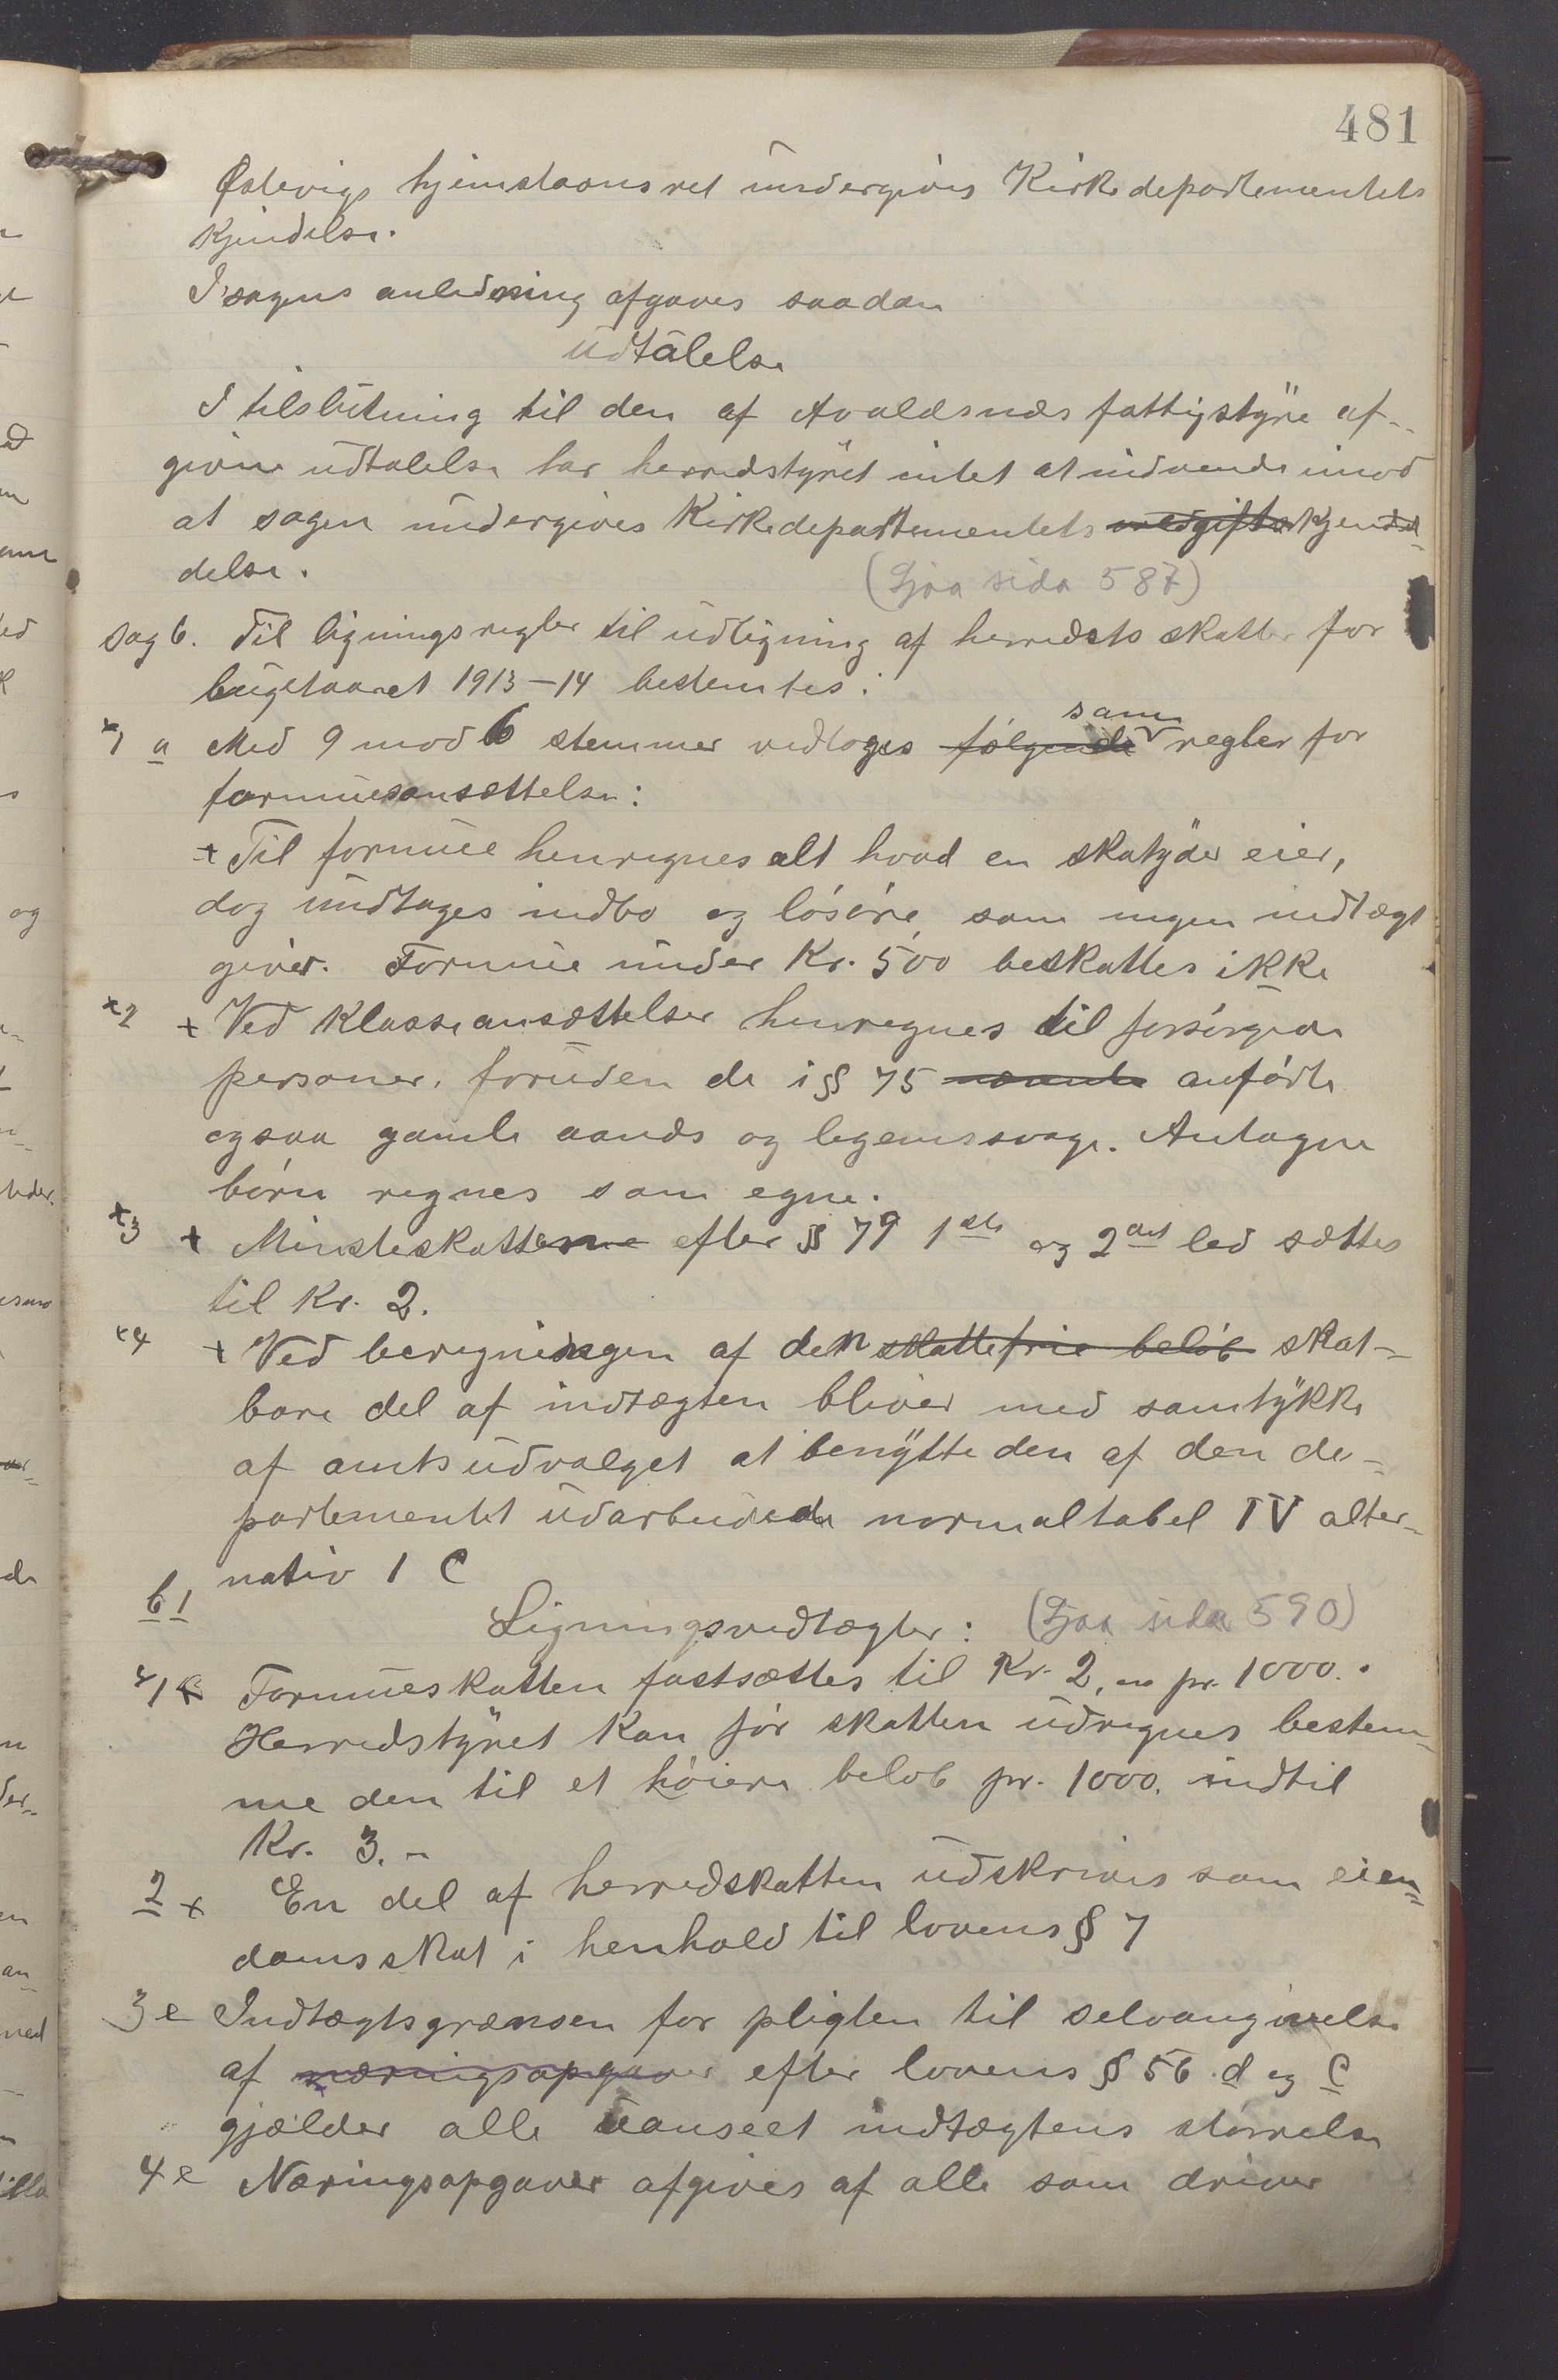 481
Østevigs hjemstavnsret undergives Kirkedepartementets
Kjendelse.
I sagens anledning afgaves saadan
Udtalelse
I tilslutning til den af Avaldsnæs fattigstyre af-
givne udtalelse har herredstyret intet at indvende imod
at sagen undergives Kirkedepartementets Kjend-
delse.
(Sjaa sida 587)
Sag 6. Til ligningsregler til udligning af herredets skatter for
bugetaaret 1913-14 bestemtes:
x1 a Med 9 mod 6 stemmer vedtoges følgende som regler for
formuesansættelse:
+ Til formue henregnes alt hvad en skatyder eier,
dog undtages indbo og løsøre, som ingen indtægt
giver. Formue under Kr. 500 beskattes ikke
x2 + Ved Klasseansættelser henregnes til forsørgede
personer, foruden de i § 75 nævnte anførte
ogsaa gamle aands og legemssvage. Antagne
børn regnes som egne.
x3 + Minsteskatterne efter § 79 1ste og 2det led sættes
til Kr. 2.
x4 + Ved beregningen af den skattefrie beløb skat-
bare del af indtægten bliver med samtykke
af amtsudvalget at benytte den af den de-
partementet udarbeidede normaltabel IV alter-
nativ 1 C
b1
Ligningsvedtægter: (Sjaa sida 590)
x1 Formueskatten fastsættes til Kr. 2,00 pr. 1000.
Herredstyret Kan før skatten udregnes bestem-
me den til et høiere beløb pr. 1000. indtil
Kr. 3.-
2 x En del af herredskatten udskrives som eien-
domsskat i henhold til lovens § 7
3 e Indtægtsgrænsen for pligten til selvangivelse
af næringsopgaver efter lovens § 56 d og C
gjælder alle uanseet indtægtens størrelse
4 e Næringsopgaver afgives af alle som driver